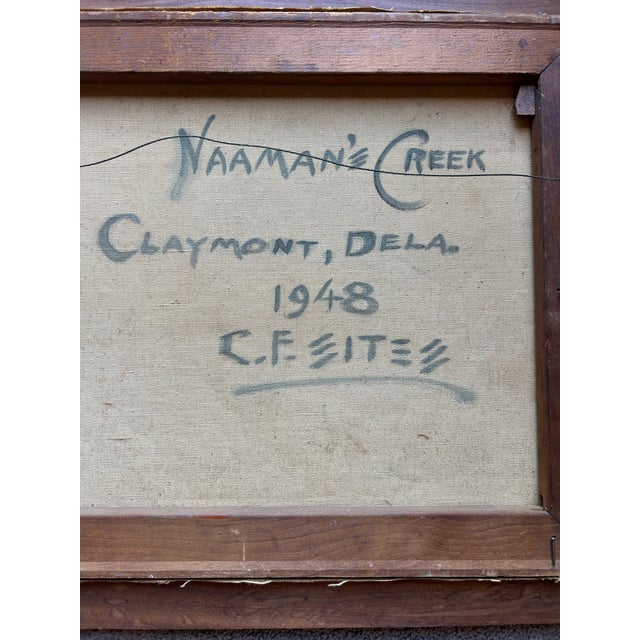 NAAMAN'S CREEK
CLAYMONT, DELA.
1948
C.F. SITES